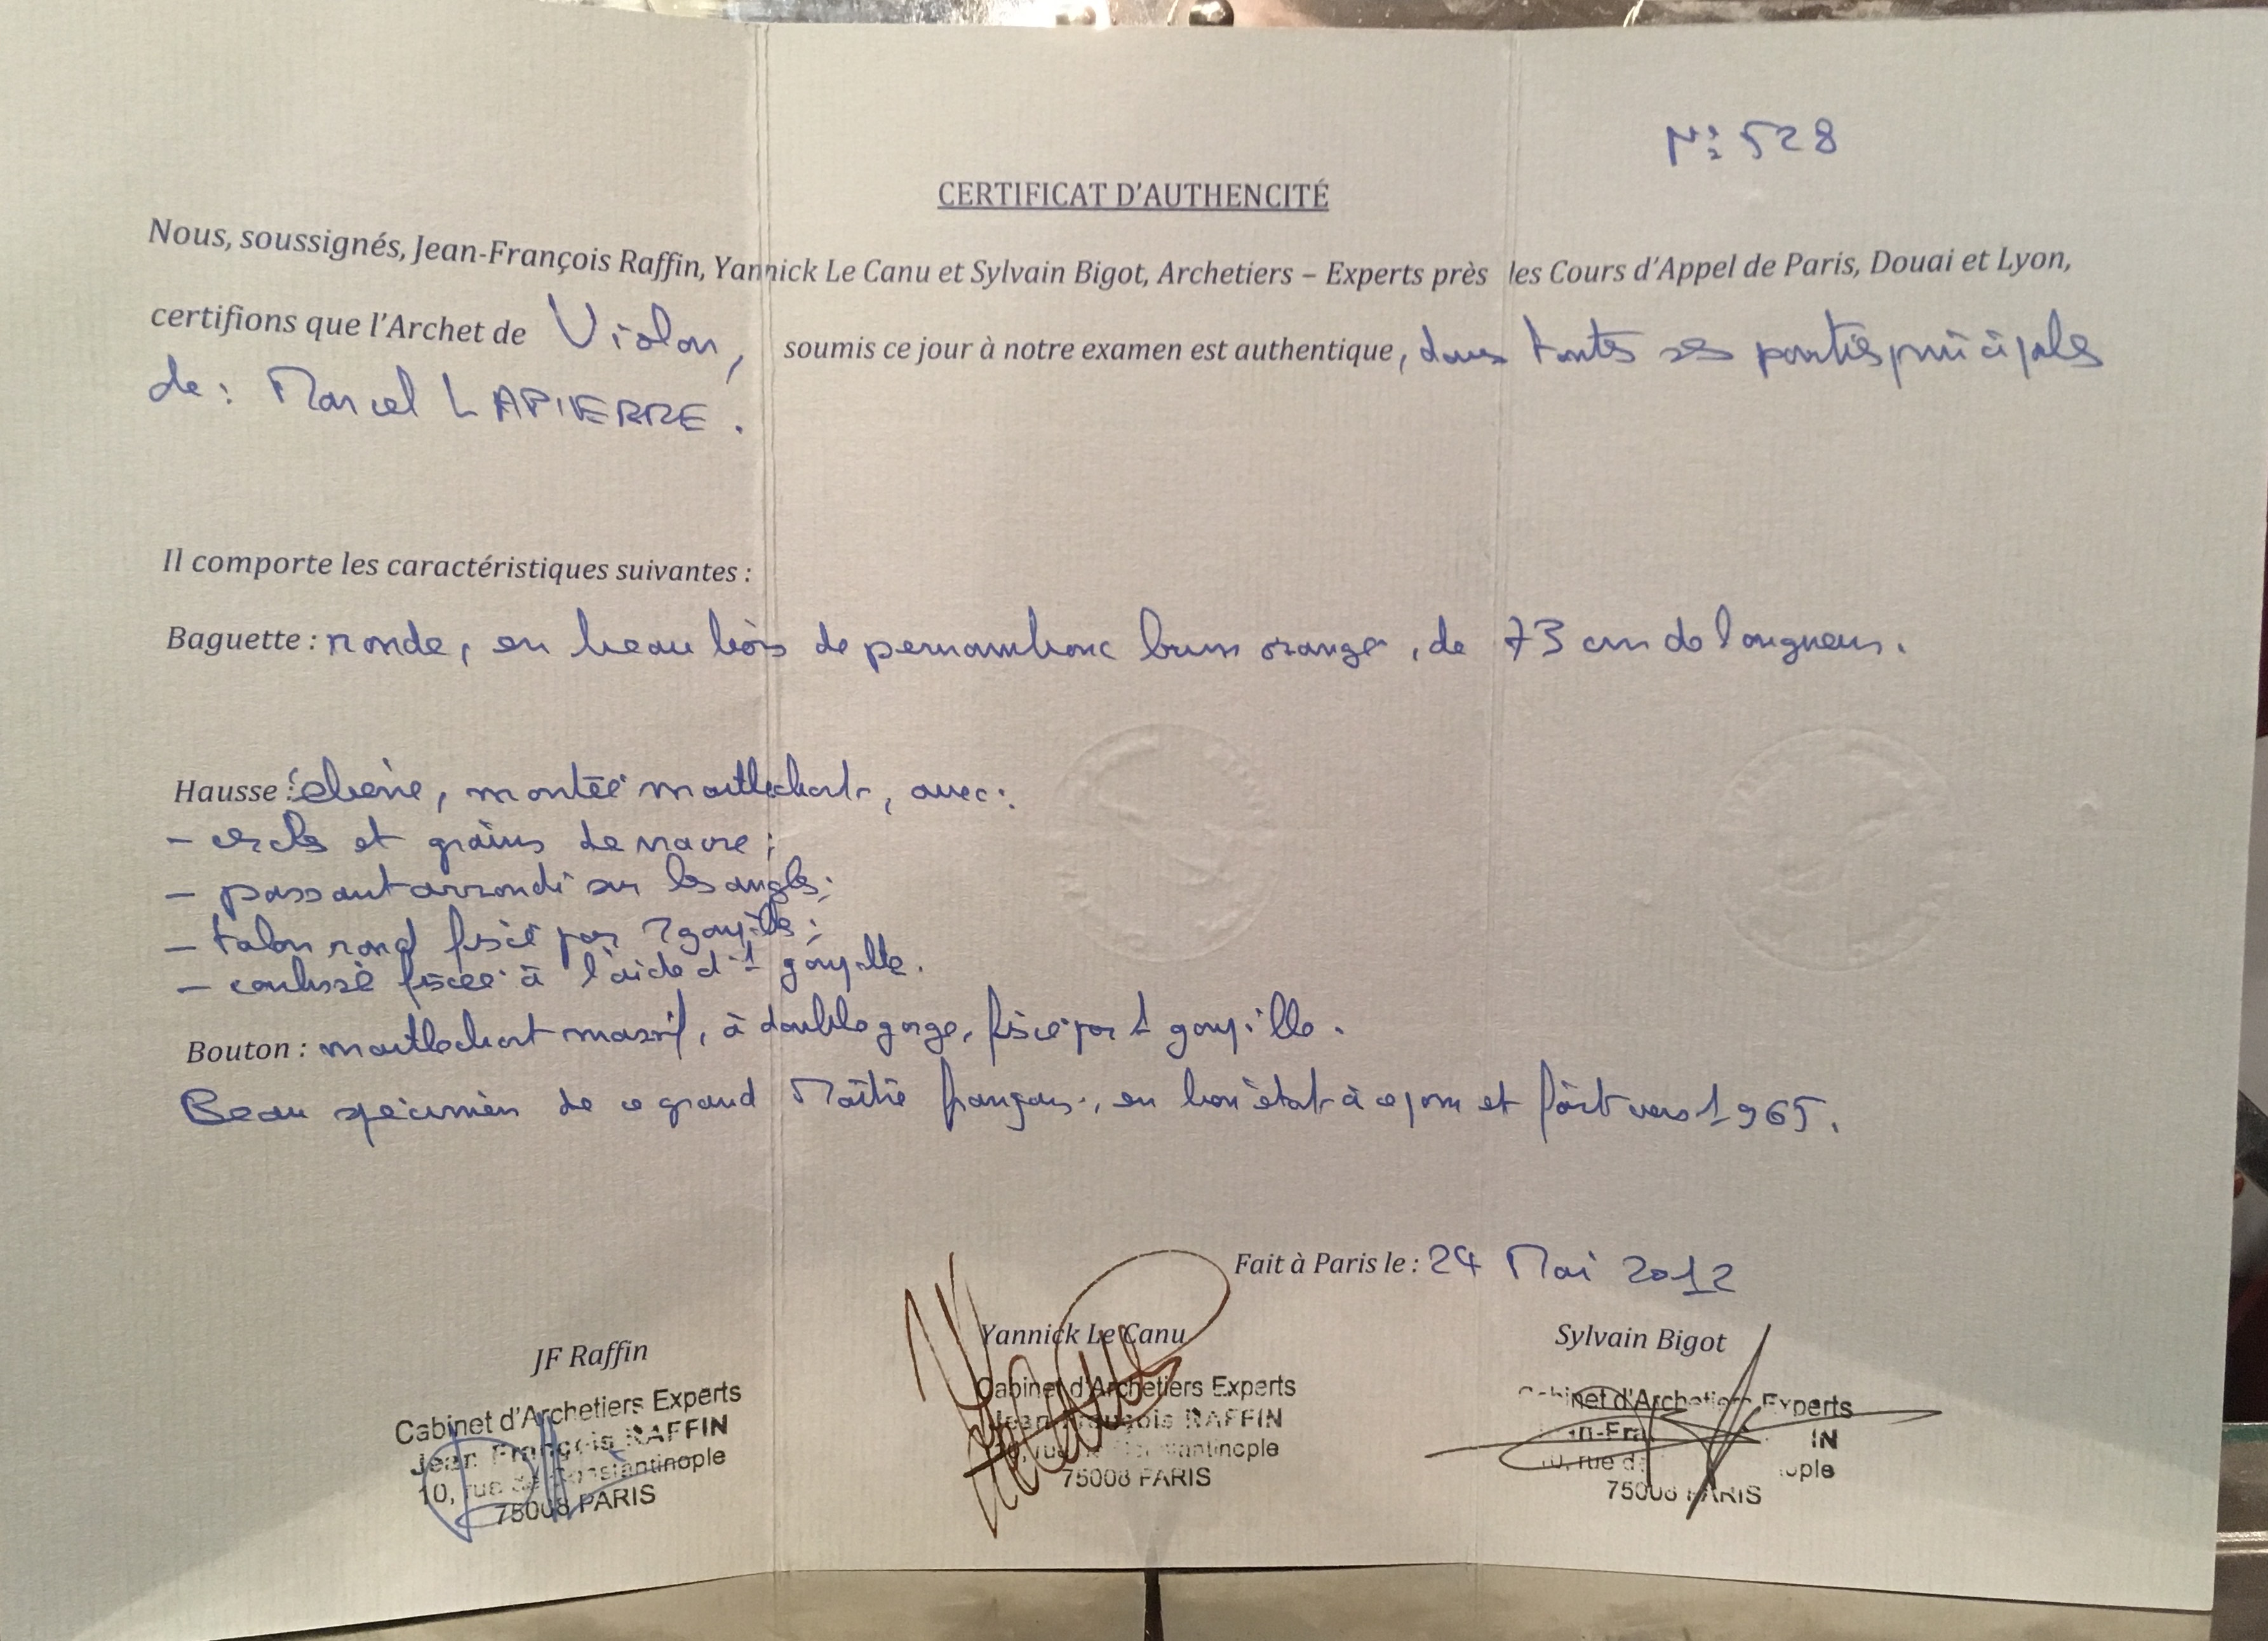 N° 528
CERTIFICAT D'AUTHENCITÉ
Nous, soussignés, Jean-François Raffin, Yannick Le Canu et Sylvain Bigot, Archetiers – Experts près les Cours d'Appel de Paris, Douai et Lyon,
certifions que l'Archet de Violon, soumis ce jour à notre examen est authentique, dans toutes ses parties principales
de : Marcel LAPIERRE.
Il comporte les caractéristiques suivantes :
Baguette : ronde, en beau bois de pernambouc brun orangé, de 73 cm de longueur.
Hausse : ébène, montée maillechort, avec :
- cercles et grains de nacre ;
- passant arrondi sur les angles ;
- talon rond fixé par 2 goupilles ;
- coulisse fixée à l'aide d'1 goupille.
Bouton : maillechort massif, à double gorge, fixé par 1 goupille.
Beau spécimen de ce grand Maître français, en bon état à ce jour et fait vers 1965.
Fait à Paris le : 24 Mai 2012
JF Raffin
Cabinet d'Archetiers Experts
Jean François RAFFIN
10, rue de Constantinople
75008 PARIS
Yannick Le Canu
Cabinet d'Archetiers Experts
Jean François RAFFIN
10, rue de Constantinople
75008 PARIS
Sylvain Bigot
Cabinet d'Archetiers Experts
75008 PARIS